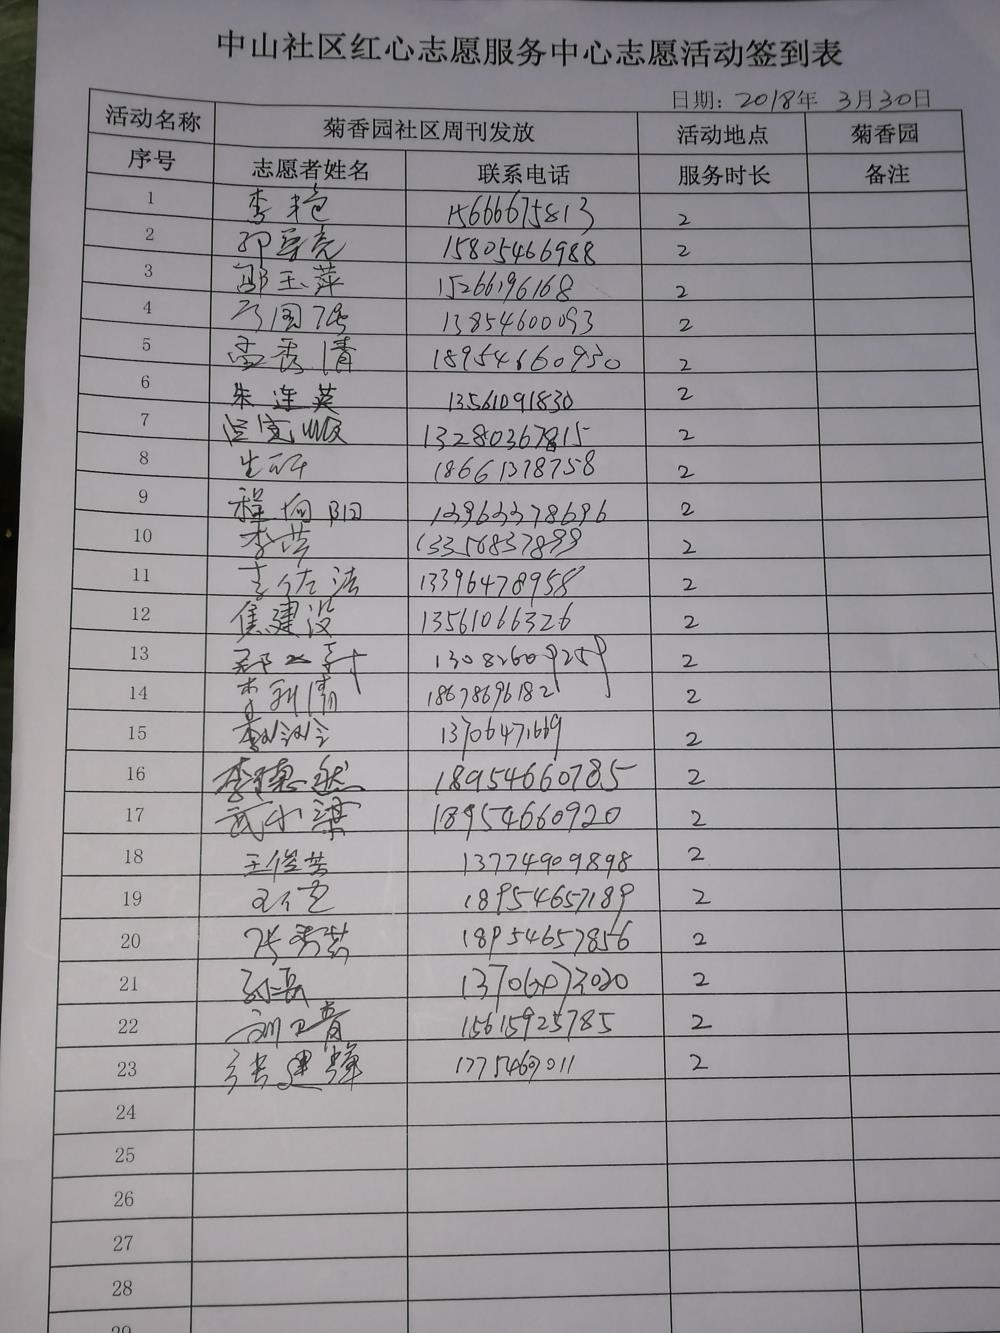 中山社区红心志愿服务中心志愿活动签到表
日期：2018年 3月30日
活动名称 菊香园社区周刊发放 活动地点 菊香园
序号 志愿者姓名 联系电话 服务时长 备注
1 李艳 15666675813 2
2 15805466988 2
3 邵玉萍 15266196168 2
4 13854600093 2
5 孟秀清 18954660930 2
6 朱连英 13561091830 2
7 13280367815 2
8 18661378758 2
9 程向阳 13963378696 2
10 李萍 13356837899 2
11 13396478958 2
12 焦建设 13561066326 2
13 13082609259 2
14 李利清 18678696182 2
15 13706471669 2
16 18954660785 2
17 武小梁 18954660920 2
18 王俊芸 13774909898 2
19 18954657189 2
20 张秀芸 18954657856 2
21 2
22 刘卫青 15615925785 2
23 张建辉 2
24
25
26
27
28
29